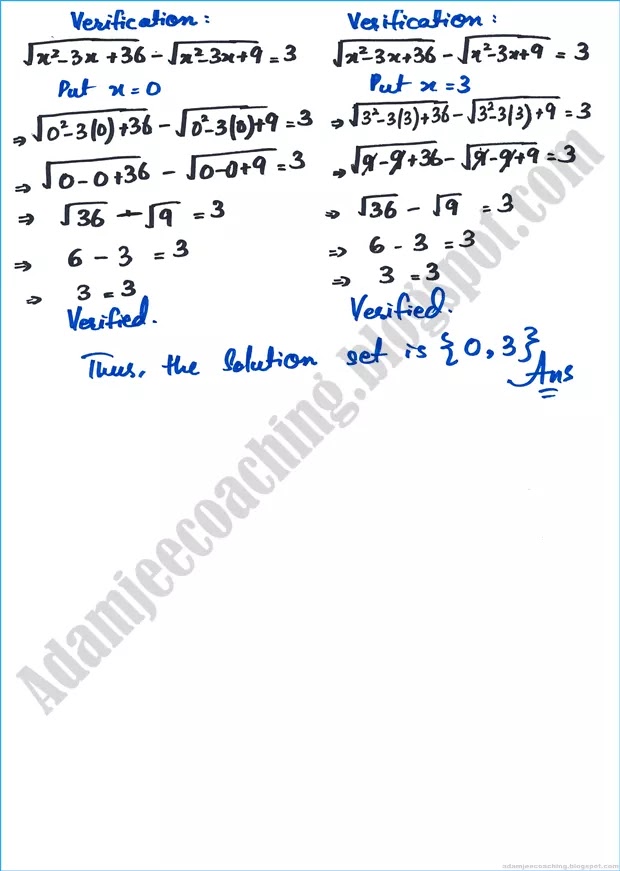 Verification:
√x²-3x+36 - √x²-3x+9 = 3
Put x = 0
⇒ √0²-3(0)+36 - √0²-3(0)+9 = 3
⇒ √0-0+36 - √0-0+9 = 3
⇒ √36 - √9 = 3
⇒ 6 - 3 = 3
⇒ 3 = 3
Verified.
Verification:
√x²-3x+36 - √x²-3x+9 = 3
Put x = 3
⇒ √3²-3(3)+36 - √3²-3(3)+9 = 3
⇒ √9-9+36 - √9-9+9 = 3
⇒ √36 - √9 = 3
⇒ 6 - 3 = 3
⇒ 3 = 3
Verified.
Thus, the solution set is {0, 3} Ans
Adamjeecoaching.blogspot.com
adamjeecoaching.blogspot.com